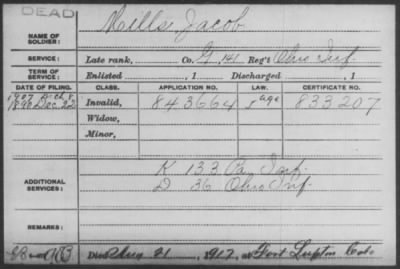 DEAD
Mills, Jacob
NAME OF SOLDIER:
SERVICE: Late rank, Co. G, 141 Reg't Ohio Inf.
TERM OF SERVICE: Enlisted , 1 Discharged , 1
DATE OF FILING. CLASS. APPLICATION NO. LAW. CERTIFICATE NO.
1890 Dec. 22 Invalid, 843664 age 833207
Widow,
Minor,
K 133 Pa. Inf.
ADDITIONAL SERVICES: D 36 Ohio Inf.
REMARKS:
Died Aug 21, 1917, at Fort Lupton Colo